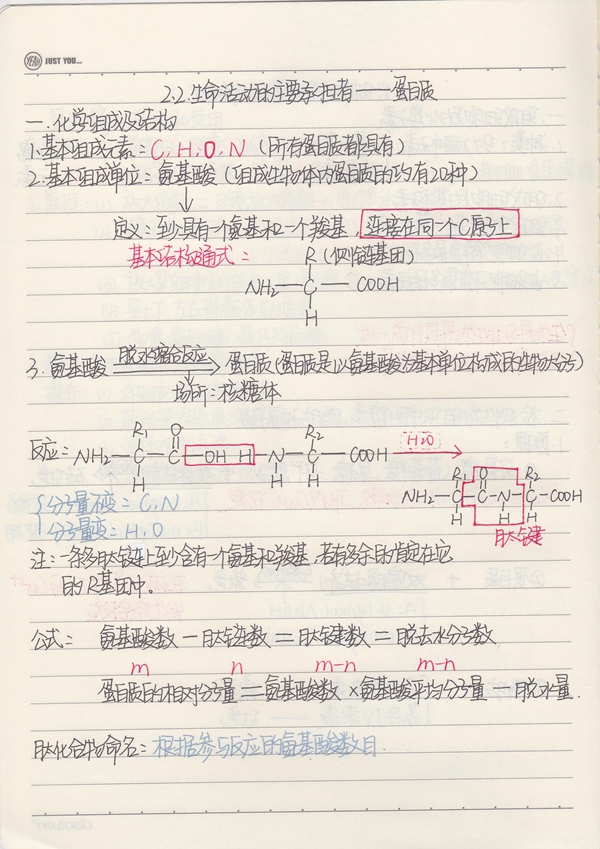 YEAH JUST YOU...
2.2.生命活动的主要承担者——蛋白质
一.化学组成及结构
1.基本组成元素:C,H,O,N (所有蛋白质都具有)
2.基本组成单位:氨基酸(组成生物体内蛋白质的约有20种)
定义:至少具有一个氨基和一个羧基,连接在同一个C原子上
基本结构通式:
R(侧链基团)
NH₂—C—COOH
H
脱水缩合反应
3.氨基酸 蛋白质(蛋白质是以氨基酸为基本单位构成的生物大分子)
场所:核糖体
R₁ O R₂
反应: NH₂—C—C—OH H—N—C—COOH H₂O
H H H
R₁ O R₂
NH₂—C—C—N—C—COOH
H H H
肽键
分子量不变:C,N
分子量变:H,O
注:一条多肽链上至少含有一个氨基和羧基,若有多余的肯定在它
的R基团中。
公式: 氨基酸数—肽链数=肽键数=脱去水分子数
m n m-n m-n
蛋白质的相对分子量=氨基酸数×氨基酸平均分子量—脱水量.
肽化合物命名:根据参与反应的氨基酸数目.